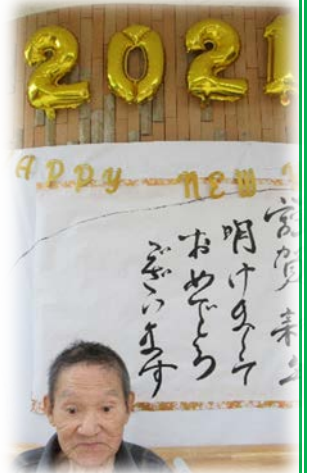 2021
APPY NEW
謹賀新年
明けまして
おめでとう
ございます